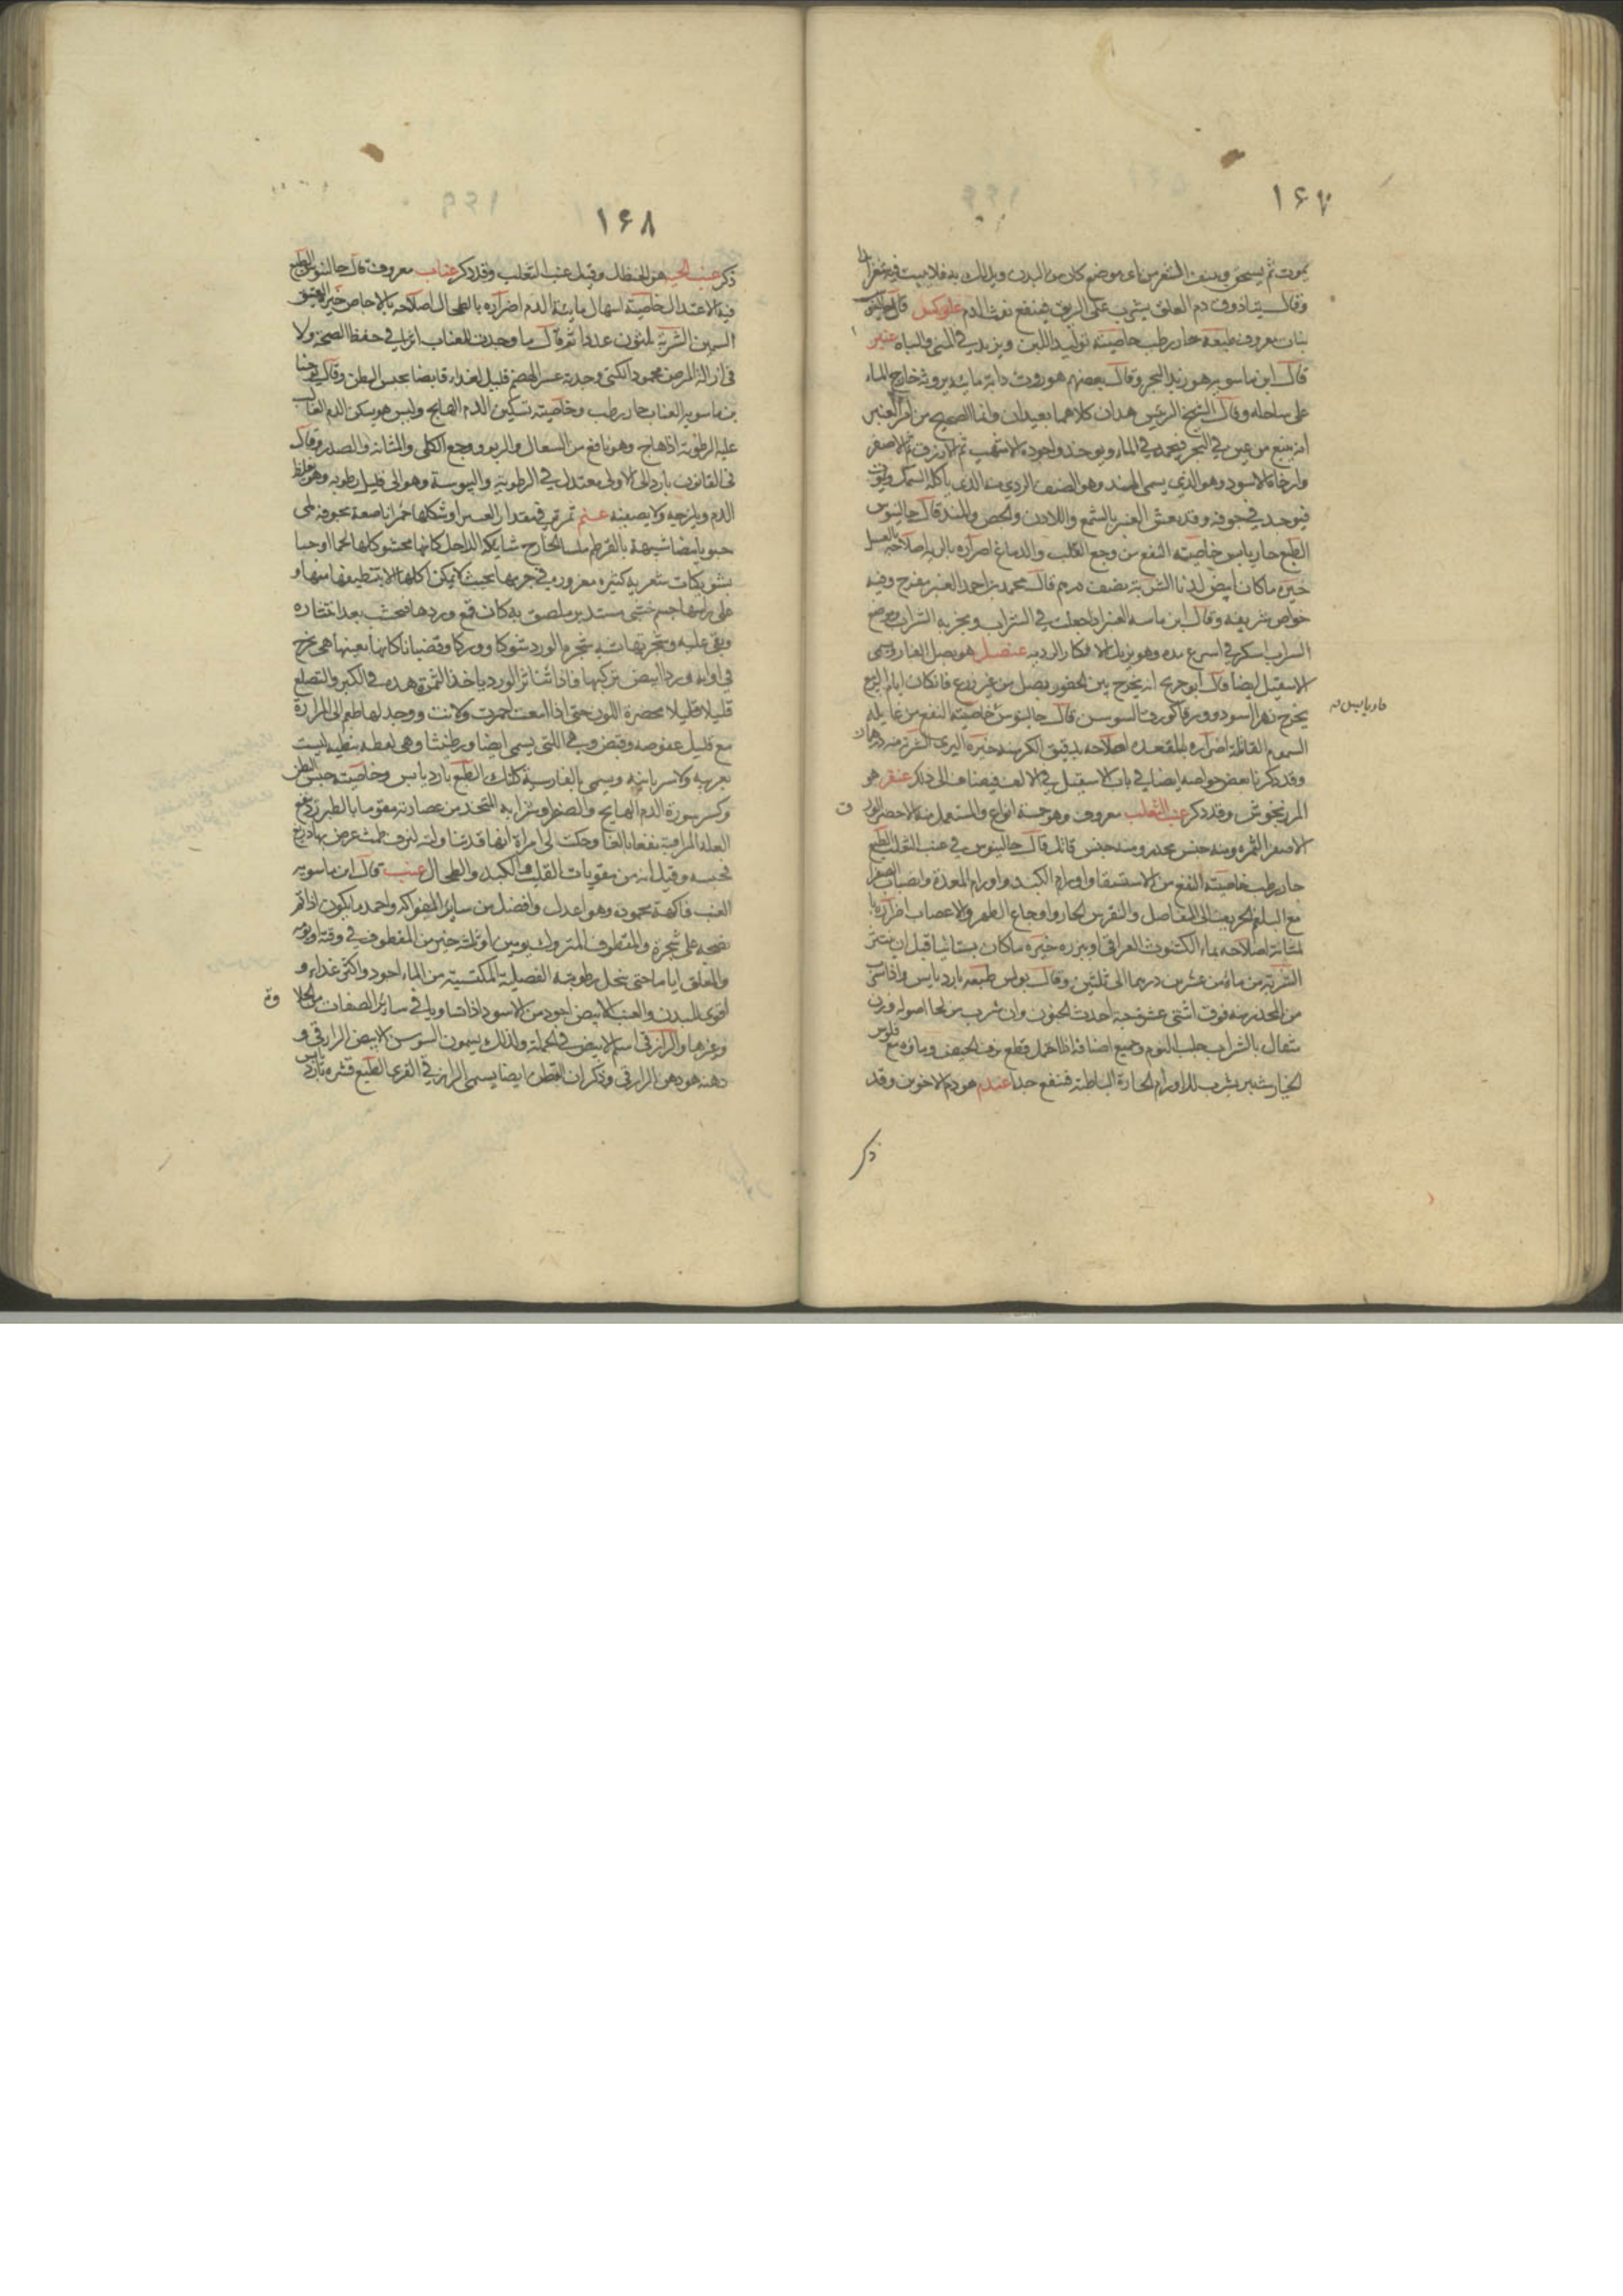 ١٦٧
يموت ثم يسحق وينتف الشعر من اى موضع كان من البدن ويدلك به فلا ينبت فيه شعرا
وقال بيناذوق دم العلق يشرب على الريق فينفع نفث الدم علوكس قال جالينوس
نبات معروف طبعه حار رطب خاصيته توليد اللبن ويزيد في المنى والباه عنبر
قال ابن ماسويه هو زبد البحر وقال بعضهم هو روث دابة مائية يروثه خارج الماء
على ساحله وقال الشيخ الرئيس هذان كلاهما بعيدان وانما الصحيح من امر العنبر
انه ينبع من عين في البحر فيجمد في الماء ويوخذ واجوده الاشهب ثم الازرق ثم الاصفر
واردأه الاسود وهو الذي يسمى المند وهو الصنف الردى منه الذى ياكله السمك ويموت
فيوجد في جوفه وقد يغش العنبر بالشمع واللادن والجص والمند قال جالينوس
الطبع حار يابس خاصيته النفع من وجع القلب والدماغ اضراره بالريه اصلاحه بالعسل
خيره ما كان ابيض لدنا الشربة نصف درهم قال محمد بن احمد العنبر مفرح وفيه
خواص شريفه وقال ابن ماسه العنبر اذا جعلت في الشراب
الشراب اسكر في اسرع مده وهو يزيل الافكار الرديه عنصل هو بصل الفار ويسمى
الاسقيل ايضا وقال ابو جريج انه يخرج بين الصخور بصل من غير زرع فاذا كان ايام الربيع
يخرج زهرا اسود وورقا كورق السوسن قال جالينوس خاصيته النفع من غايله
السموم القاتلة اضراره بالمقعده اصلاحه بدقيق الكرسنه خيره البرى الشربة منه درهمان
وقد ذكرنا بعض خواصه ايضا في باب الاسقيل في الالف فيضاف الى ذلك عنقر هو
المرزنجوش وقد ذكر عنب الثعلب معروف وهو خمسة انواع والمستعمل منه الاخضر الورق
الاصفر الثمره ومنه جنس مخدر ومنه جنس قاتل قال جالينوس في عنب الثعلب الطبع
حار رطب خاصيته النفع من الاستسقا واورام الكبد واورام المعدة وانصباب الصفرا
مع البلغم الحريف الى المفاصل والنقرس الحار واوجاع الظهر والاعصاب اضراره
بالمثانة اصلاحه بماء الكشوث العراقى او بزره خيره ما كان بستانيا قبل ان ينتثر
الشربة من مائه من عشرين درهما الى ثلثين وقال بولس طبعه بارد يابس واذا سقى
من المخدر منه فوق اثنتى عشر حبة احدث الجنون وان شرب من لحا اصوله وزن
مثقال بالشراب جلب النوم وجميع اصنافه اذا احتمل قطع نزف الحيض وماؤه مع فلوس
الخيار شنبر يشرب للاورام الحارة الباطنة فينفع جدا عندم هو دم الاخوين وقد
ذكر
حار يابس نه
ق
١٦٨
ذكر عنب الحيه هو الحنظل وقيل عنب الثعلب وقد ذكر عناب معروف قال جالينوس الطبع
فيه الاعتدال خاصيته اسهال مايئة الدم اضراره بالطحال اصلاحه بالاجاص خيره العتيق
السمين الشربة ثلثون عددا ثم قال ما وجدت للعناب اثرا في حفظ الصحة ولا
في ازالة المرض محمودا لكنى وجدته عسر الهضم قليل الغذاء قابضا يحبس البطن وقال يوحنا
بن ماسويه العناب حار رطب وخاصيته تسكين الدم الهايج وليس هو يسكن الدم الغالب
عليه الرطوبة اذا هاج وهو نافع من السعال والربو ووجع الكلى والمثانة والصدر وقال
فى القانون بارد الى الاولى معتدل في الرطوبة واليبوسة وهو الى قليل رطوبه وهو يغلظ
الدم ويلزجه ولا يصفيه عنم ثمر ترتب في مقدار العسر وشكلها حمرا ناصعة مجوفه ملى
حبوبا بيضا شبيهة بالقرطم ملسا الخارج شايكه الداخل كانها محشو كلها لحما وحبا
بشويكات شعريه كثيره مغروره في جرمها بحيث لا يمكن اكلها الا بتنظيفها منها و
على راسها جسم خشبى مستدير ملصق به كان قمع وردها تخشب بعد انتثاره
وبقى عليه وشجرتها شبيه شجرة الورد شوكا وورقا وقضبانا كانها بعينها هى يخرج
في اوانه وردا ابيض تزكيها فاذا تناثر الورد ياخذ الثمرة هذه في الكبر والتضلع
قليلا قليلا مخضرة اللون حتى اذا امعنت احمرت ولانت ووجد لها طعم الى المرارة
مع قليل عفوصه وقبض وهى اللتى يسمى ايضا ورطنشا وهى لفظه نبطيه ليست
بعربيه ولا سريانيه ويسمى بالفارسية كلنك الطبع بارد يابس وخاصيته حبس البطن
وكسر سورة الدم الهايج والصفرا وشرابه المتخذ من عصارته مقوما بالطبرزد ينفع
العلة المراقية نفعا بالغا وحكت لى امراة انها قد تناولته لنزف طمث عرض بها ذريع
فحبسه وقيل انه من مقويات القلب والكبد والطحال عنب قال ابن ماسويه
العنب فاكهة محمودة وهو اعدل وافضل من سائر الفواكه واحمد ما يكون اذا تم
نضجه على شجره والمقطوف المتروك يومين او ثلثة خير من المقطوف في وقته ويومه
والمعلق اياما حتى ينحل رطوبته الفضليه المكتسبه من الماء اجود واكثر غذاء و
اقوى للبدن والعنب الابيض اجود من الاسود اذا تساويا في سائر الصفات من الحلاوة
وغيرها والرازقى اسم الابيض في الجملة ولذلك يسمون السوسن الابيض الرازقى و
دهنه هو دهن الرازقى وذكر ان القطن ايضا يسمى الرازقى القرى الطبع قشره بارد يابس